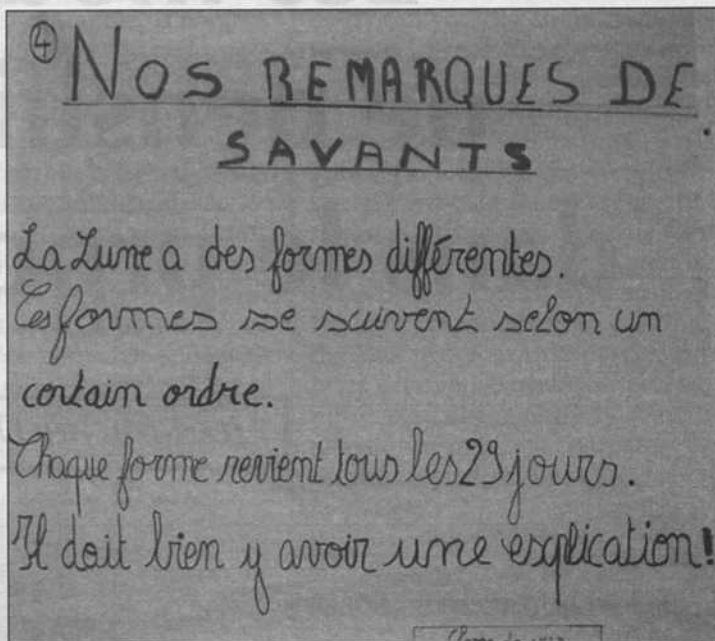 ④ NOS REMARQUES DE
SAVANTS
La Lune a des formes différentes.
Ces formes se suivent selon un
certain ordre.
Chaque forme revient tous les 29 jours.
Il doit bien y avoir une explication!